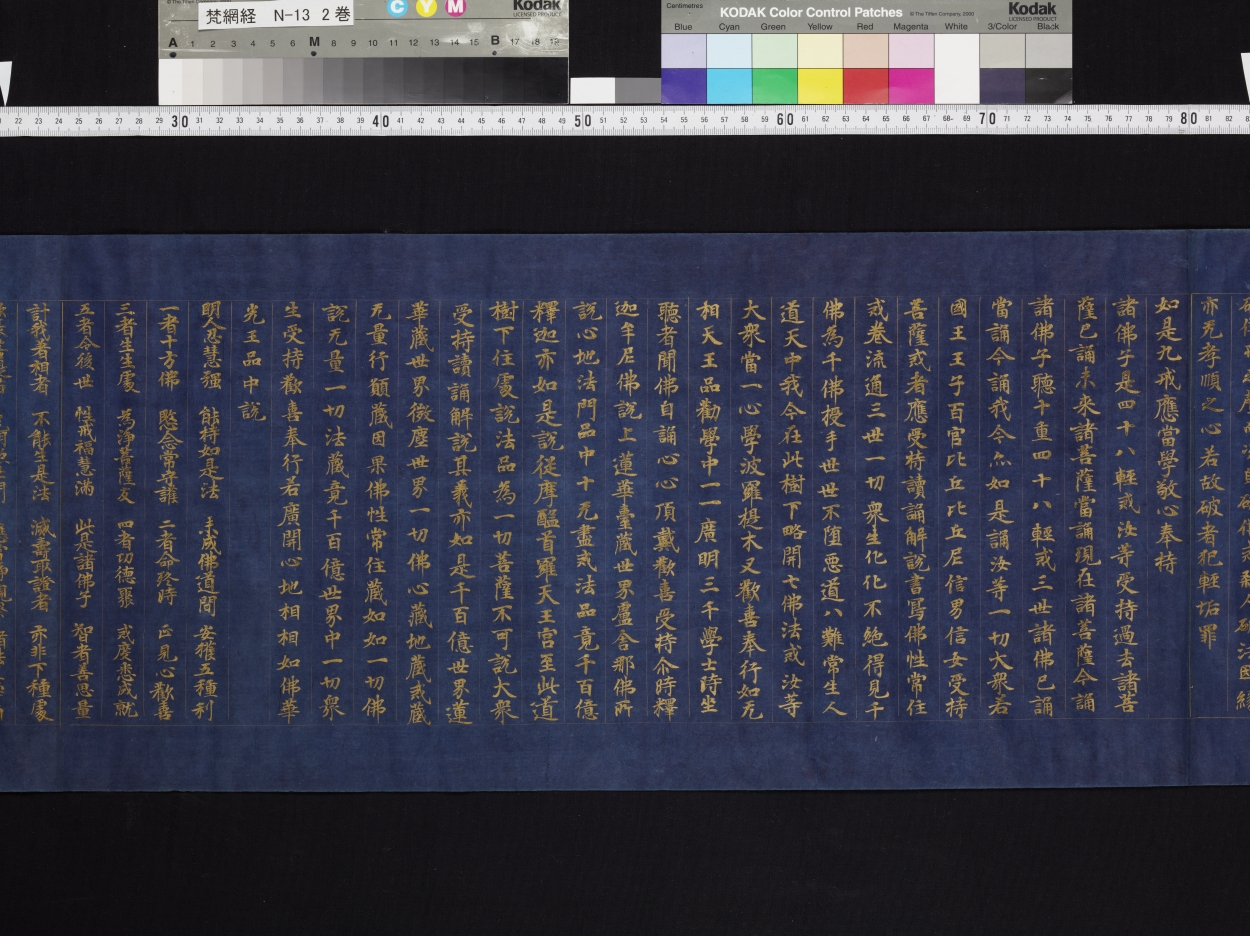 梵網経 N-13 2巻
Kodak
LICENSED PRODUCT
C Y M
A 1 2 3 4 5 6 M 8 9 10 11 12 13 14 15 B 17 18 19
Centimetres
KODAK Color Control Patches
© The Tiffen Company, 2000
Kodak
LICENSED PRODUCT
Blue Cyan Green Yellow Red Magenta White 3/Color Black
22 23 24 25 26 27 28 29 30 31 32 33 34 35 36 37 38 39 40 41 42 43 44 45 46 47 48 49 50 51 52 53 54 55 56 57 58 59 60 61 62 63 64 65 66 67 68 69 70 71 72 73 74 75 76 77 78 79 80 81 82
亦无孝順之心若故破者犯輕垢罪
如是九戒應當學敬心奉持
諸佛子是四十八輕戒汝等受持過去諸菩
薩已誦未來諸菩薩當誦現在諸菩薩今誦
諸佛子聽十重四十八輕戒三世諸佛已誦
當誦今誦我今亦如是誦汝等一切大衆若
國王王子百官比丘比丘尼信男信女受持
菩薩戒者應受持讀誦解説書寫佛性常住
戒卷流通三世一切衆生化化不絶得見千
佛為千佛授手世世不墮惡道八難常生人
道天中我今在此樹下略開七佛法戒汝等
大衆當一心學波羅提木叉歡喜奉行如无
相天王品勸學中一一廣明三千學士時坐
聽者聞佛自誦心心頂戴歡喜受持尒時釋
迦牟尼佛説上蓮華臺藏世界盧舍那佛所
説心地法門品中十无盡戒法品竟千百億
釋迦亦如是説從摩醯首羅天王宮至此道
樹下住處説法品為一切菩薩不可説大衆
受持讀誦解説其義亦如是千百億世界蓮
華藏世界微塵世界一切佛心藏地藏戒藏
无量行願藏因果佛性常住藏如如一切佛
説无量一切法藏竟千百億世界中一切衆
生受持歡喜奉行若廣開心地相相如佛華
光王品中説
明人忍慧强 能持如是法 未成佛道間 安獲五種利
一者十方佛 愍念常守護 二者命終時 正見心歡喜
三者生生處 為淨菩薩友 四者功德聚 戒度悉成就
五者今後世 性戒福慧滿 此是諸佛子 智者善思量
計我者相者 不能生是法 滅壽取證者 亦非下種處